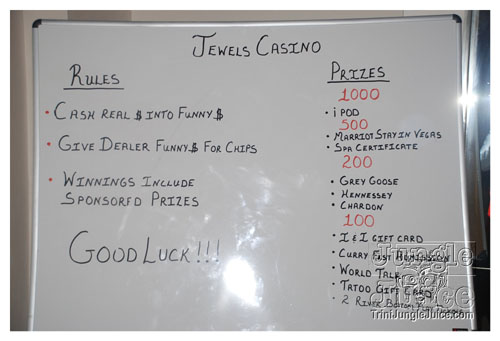 Jewels Casino
Rules
• Cash Real $ into Funny $
• Give Dealer Funny $ For Chips
• Winnings Include
Sponsored Prizes
Good Luck!!!
Prizes
1000
• iPod
500
• Marriot Stay in Vegas
• Spa Certificate
200
• Grey Goose
• Hennessey
• Chardon
100
• I & I gift card
• Curry Fest Admission
• World Talk
• Tatoo Gift Card
• 2 River
Jungle
Juice
TriniJungleJuice.com